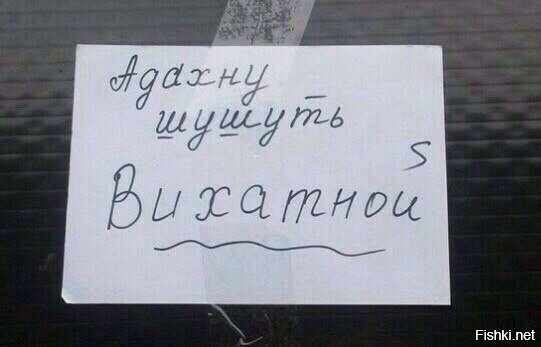 Адахну
шушуть
Вихатной
Fishki.net